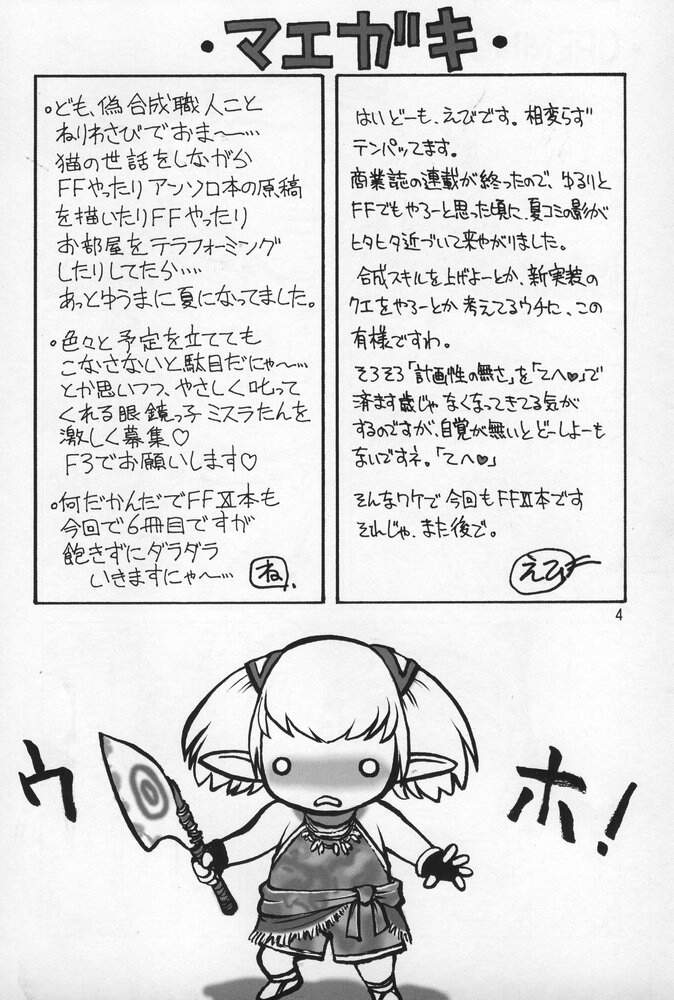 ・マエガキ・
。ども、偽合成職人こと
ねりわさびでおま〜…
猫の世話をしながら
FFやったり アンソロ本の原稿
を描いたりFFやったり
お部屋をテラフォーミング
したりしてたら‥‥
あっとゆうまに夏になってました。
。色々と予定を立てても
こなさないと駄目だにゃ〜…
とか思いつつ、やさしく叱って
くれる眼鏡っ子 ミスラたんを
激しく募集♡
F3でお願いします♡
。何だかんだでFFⅪ本も
今回で6冊目ですが
飽きずにダラダラ
いきますにゃ〜…
ね、
はいどーも、えびです。相変らず
テンパッてます。
商業誌の連載が終ったので、ゆるりと
FFでもやろーと思った頃に、夏コミの影が
ヒタヒタ近づいて来やがりました。
合成スキルを上げよーとか、新実装の
クエをやろーとか 考えてるウチに、この
有様ですわ。
そろそろ「計画性の無さ」を「てへ♥」で
済ます歳じゃ なくなってきてる気が
するのですが、自覚が無いとどーしよーも
ないですネ。「てへ♥」
そんなワケで今回もFFⅪ本です
それじゃ、また後で。
えび
4
ウ
ホ!